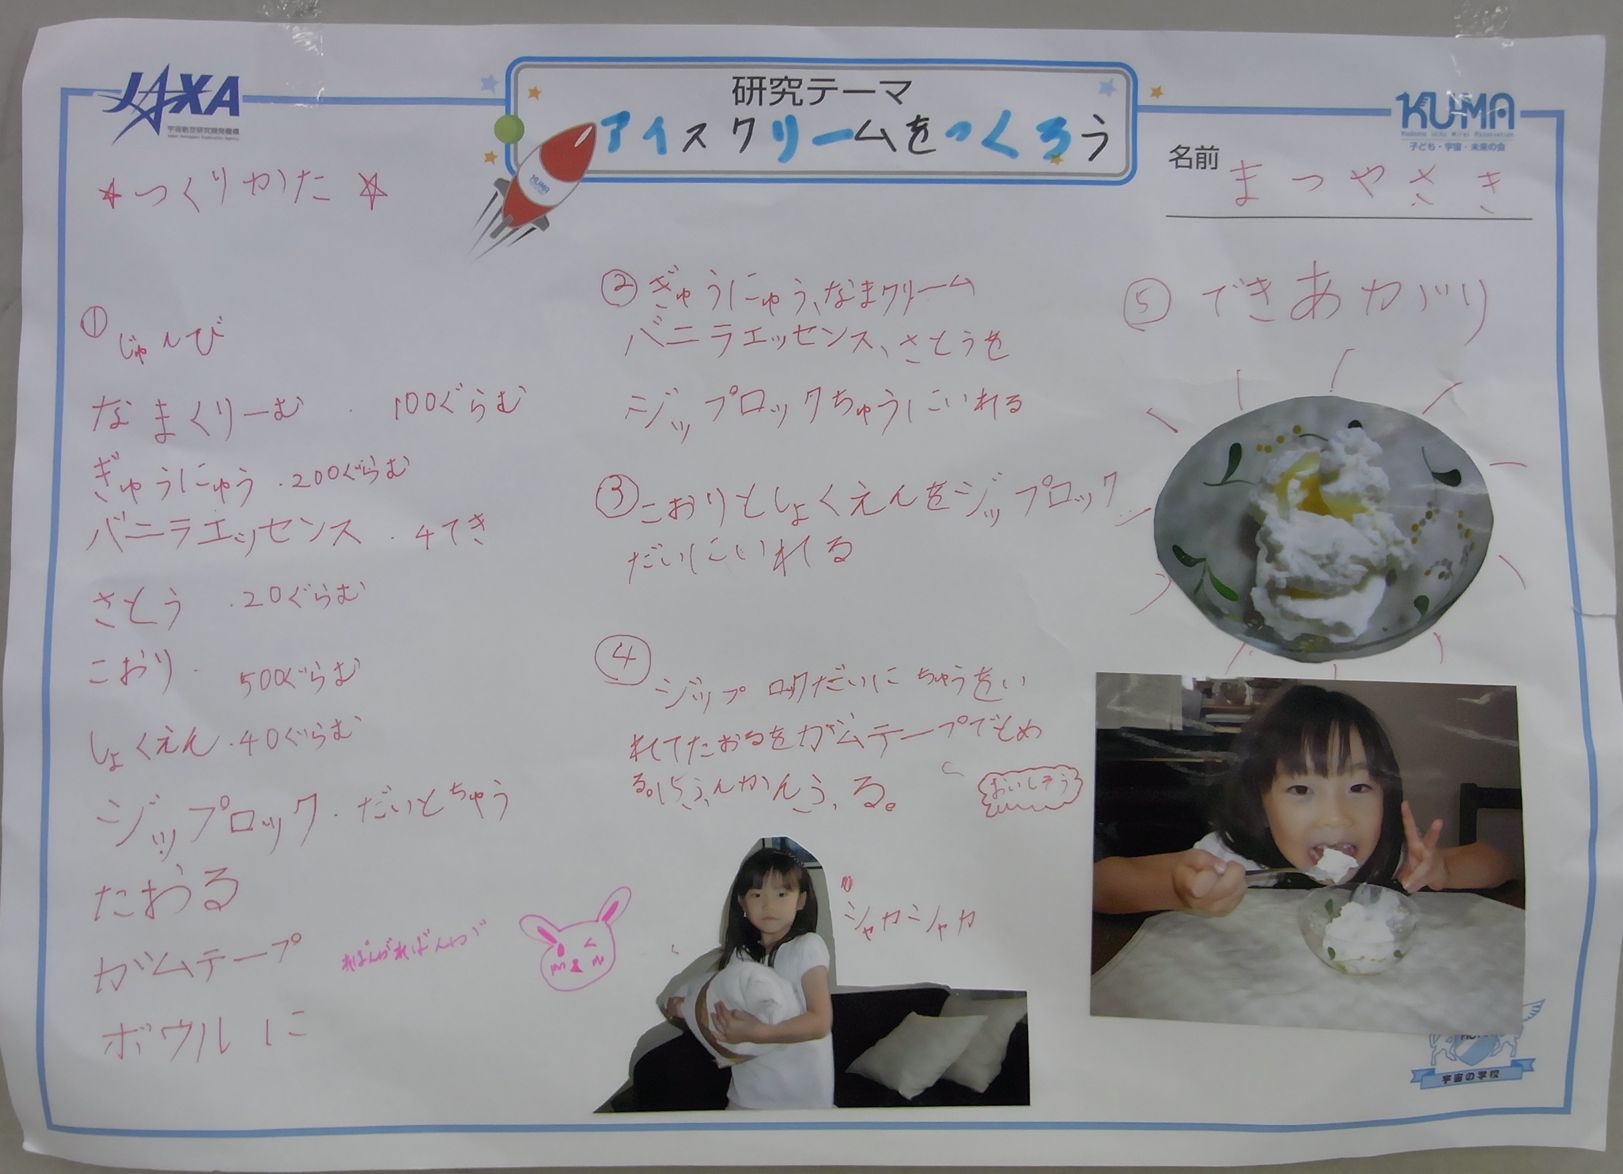 JAXA
宇宙航空研究開発機構
Japan Aerospace Exploration Agency
研究テーマ
アイスクリームをつくろう
KUMA
KU-MA
子ども・宇宙・未来の会
名前 まつやさき
☆つくりかた☆
① じゅんび
なまくりーむ ・ 100ぐらむ
ぎゅうにゅう ・200ぐらむ
バニラエッセンス ・ 4てき
さとう ・20ぐらむ
こおり ・ 500ぐらむ
しょくえん・40ぐらむ
ジップロック・だいとちゅう
たおる
ガムテープ
ボウル に
② ぎゅうにゅう、なまクリーム
バニラエッセンス、さとうを
ジップロックちゅうにいれる
③ こおりとしょくえんをジップロック
だいにいれる
④ ジップロックだいにちゅうをい
れてたおるをガムテープでとめ
る。15ふんかんふる。
おいしそう
シャカシャカ
⑤ できあがり
宇宙の学校